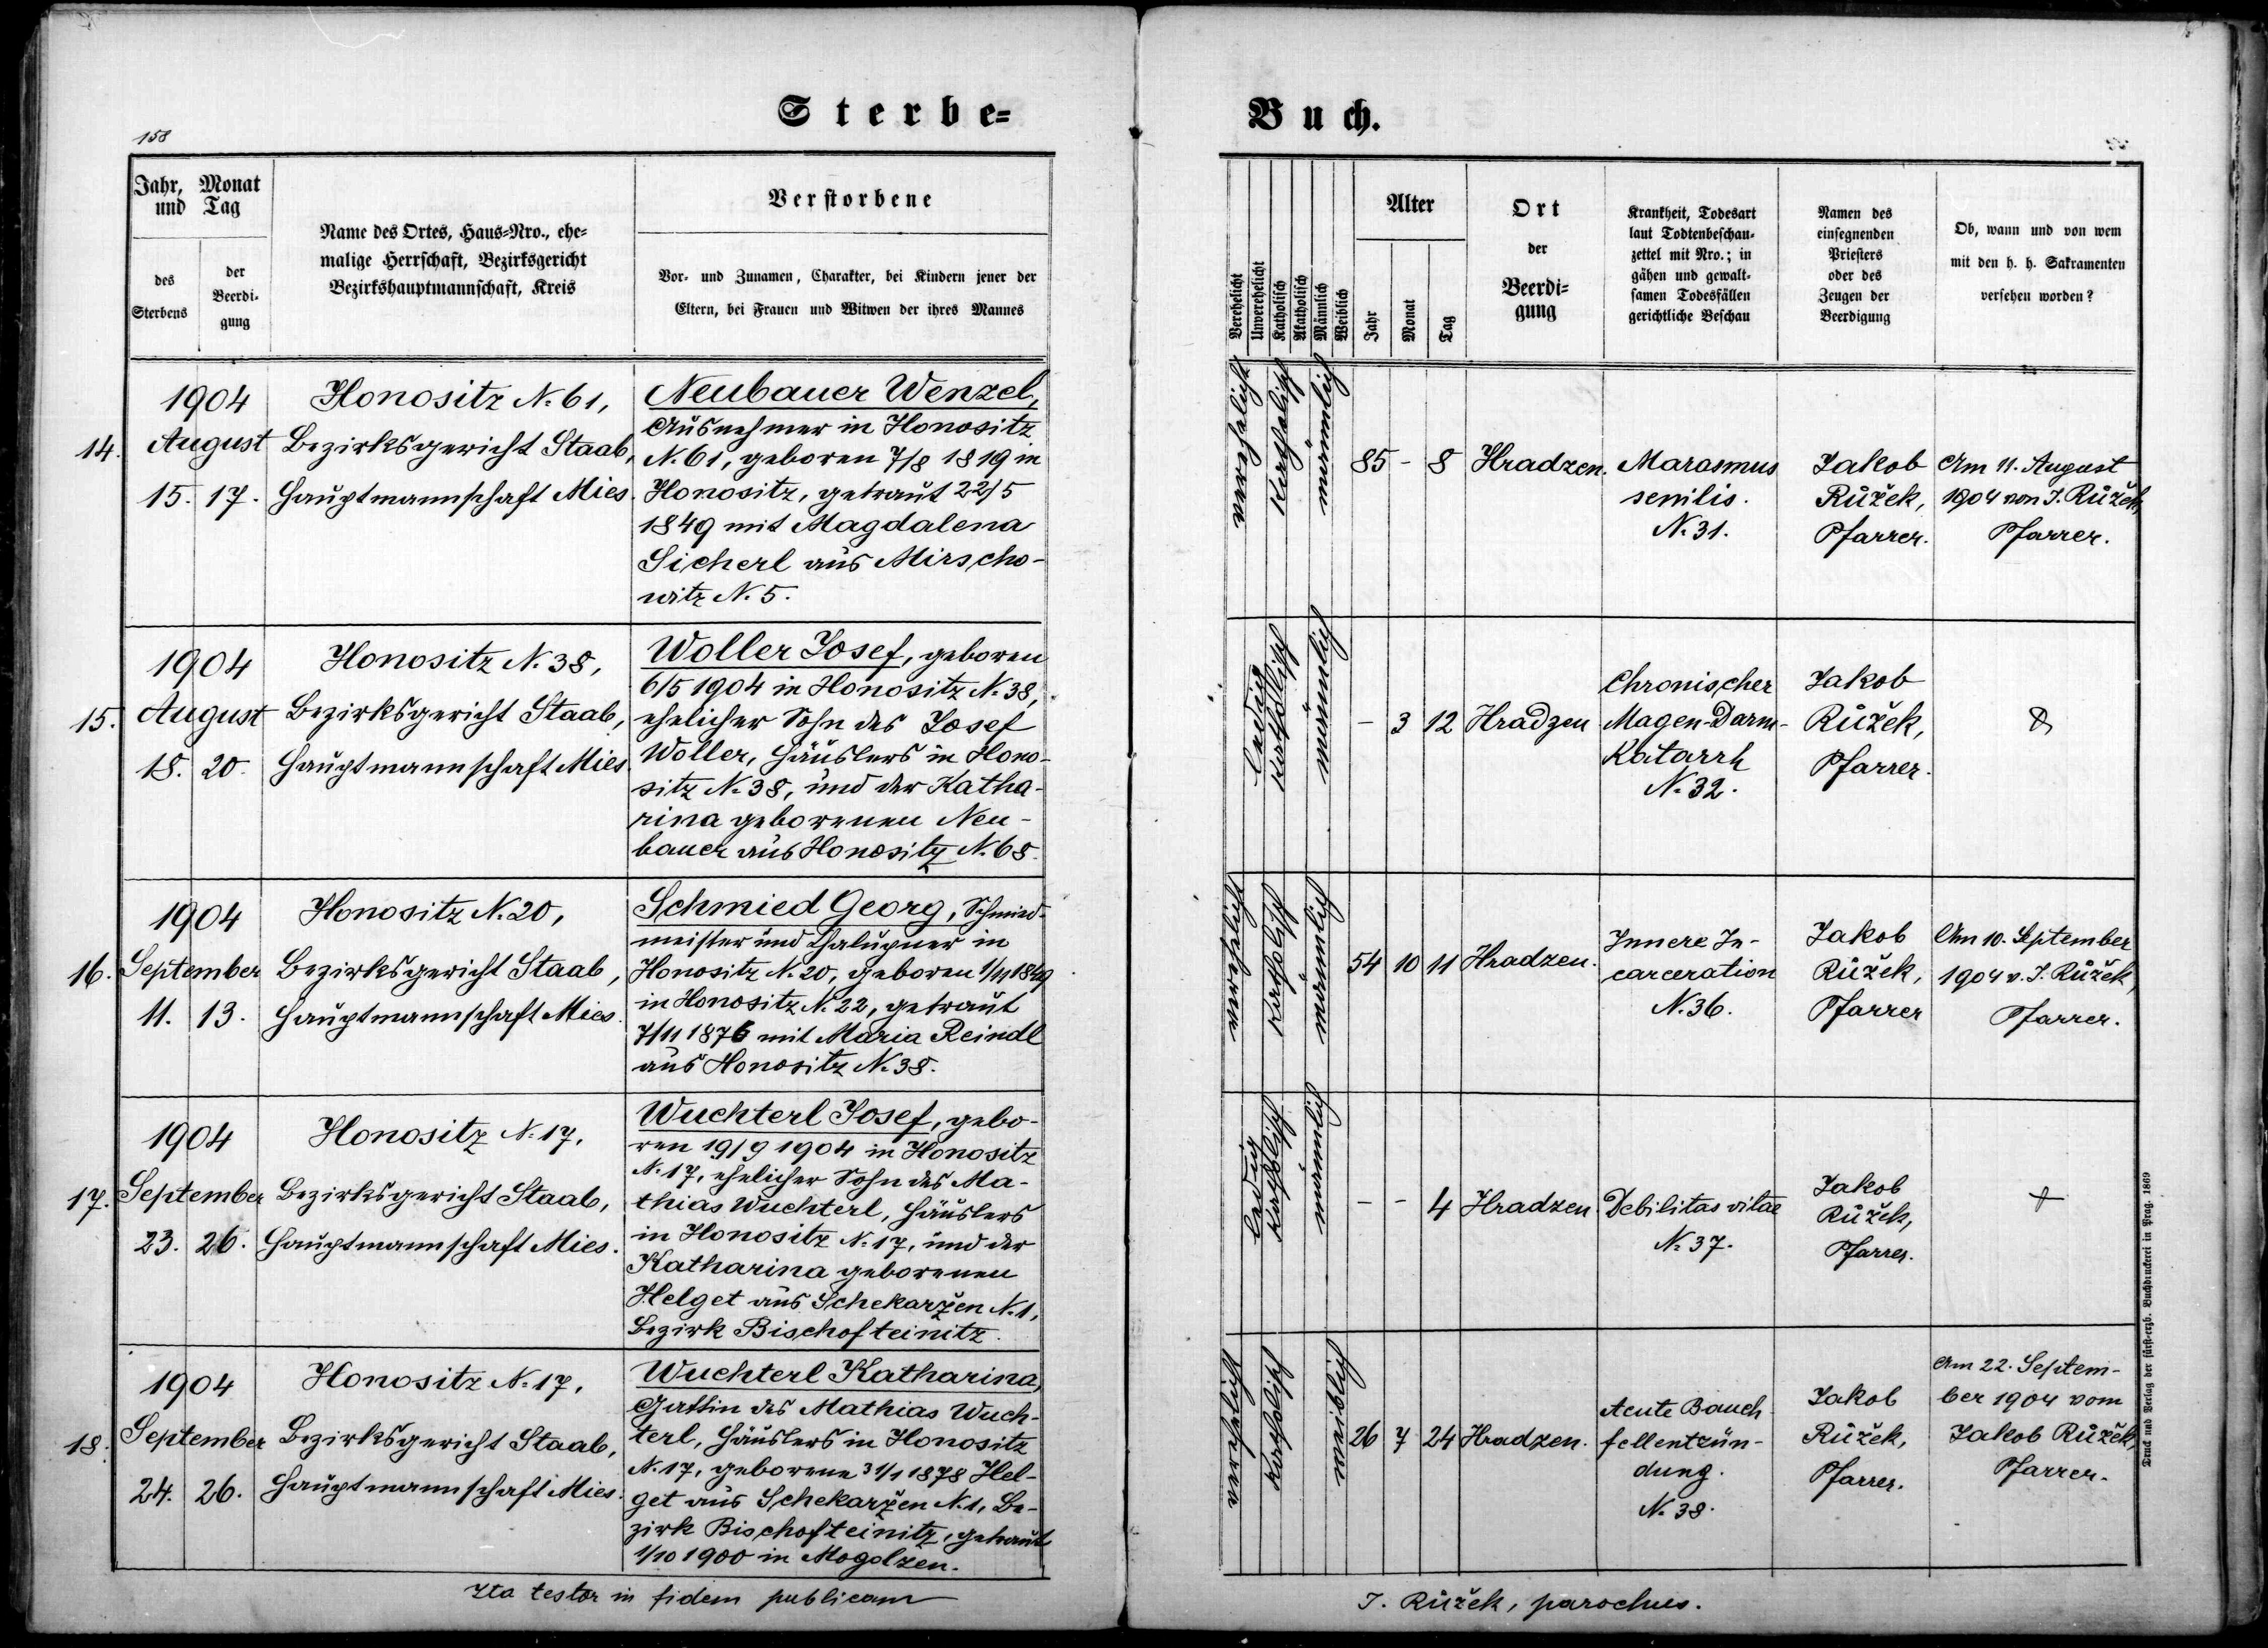 Sterbe=
Buch.
158
Jahr, Monat
und Tag
des
Sterbens
der
Beerdi-
gung
Name des Ortes, Haus=Nro., ehe=
malige Herrschaft, Bezirksgericht
Bezirkshauptmannschaft, Kreis
Verstorbene
Vor- und Zunamen, Charakter, bei Kindern jener der
Eltern, bei Frauen und Witwen der ihres Mannes
Verehelicht
Unverehelicht
Katholisch
Akatholisch
Männlich
Weiblich
Alter
Jahr
Monat
Tag
Ort
der
Beerdi=
gung
Krankheit, Todesart
laut Todtenbeschau-
zettel mit Nro.; in
gähen und gewalt-
samen Todesfällen
gerichtliche Beschau
Namen des
einsegnenden
Priesters
oder des
Zeugen der
Beerdigung
Ob, wann und von wem
mit den h. h. Sakramenten
versehen worden?
14.
1904
August
15. 17.
Honositz N. 61,
Bezirksgericht Staab,
Hauptmannschaft Mies.
Neubauer Wenzel,
Ausnehmer in Honositz
N. 61, geboren 7/8 1819 in
Honositz, getraut 22/5
1849 mit Magdalena
Sicherl aus Mirscho-
witz N. 5.
verehelicht
katholisch
männlich
85 - 8
Hradzen.
Marasmus
senilis.
N. 31.
Jakob
Růžek,
Pfarrer.
Am 11. August
1904 von J. Růžek,
Pfarrer.
15.
1904
August
18. 20.
Honositz N. 38,
Bezirksgericht Staab,
Hauptmannschaft Mies.
Woller Josef, geboren
6/5 1904 in Honositz N. 38,
ehelicher Sohn des Josef
Woller, Häuslers in Hono-
sitz N. 38, und der Katha-
rina geborenen Neu-
bauer aus Honositz N. 68.
ledig
katholisch
männlich
- 3 12
Hradzen
Chronischer
Magen-Darm-
Katarrh
N. 32.
Jakob
Růžek,
Pfarrer.
16.
1904
September
11. 13.
Honositz N. 20,
Bezirksgericht Staab,
Hauptmannschaft Mies.
Schmied Georg, Schmied-
meister und Chalupner in
Honositz N. 20, geboren 1/11 1849
in Honositz N. 22, getraut
7/11 1876 mit Maria Reindl
aus Honositz N. 38.
verehelicht
katholisch
männlich
54 10 11
Hradzen.
Innere In-
carceration
N. 36.
Jakob
Růžek,
Pfarrer
Am 10. September
1904 v. J. Růžek,
Pfarrer.
17.
1904
September
23. 26.
Honositz N. 17,
Bezirksgericht Staab,
Hauptmannschaft Mies.
Wuchterl Josef, gebo-
ren 19/9 1904 in Honositz
N. 17, ehelicher Sohn des Ma-
thias Wuchterl, Häuslers
in Honositz N. 17, und der
Katharina geborenen
Helget aus Schekaržen N. 1,
Bezirk Bischofteinitz.
ledig
katholisch
männlich
- - 4
Hradzen
Debilitas vitae
N. 37.
Jakob
Růžek,
Pfarrer.
18.
1904
September
24. 26.
Honositz N. 17,
Bezirksgericht Staab,
Hauptmannschaft Mies.
Wuchterl Katharina,
Gattin des Mathias Wuch-
terl, Häuslers in Honositz
N. 17, geborene 31/1 1878 Hel-
get aus Schekaržen N. 1, Be-
zirk Bischofteinitz, getraut
1/10 1900 in Mogolzen.
verehelicht
katholisch
weiblich
26 7 24
Hradzen.
Acute Bauch
fellentzün-
dung.
N. 38.
Jakob
Růžek,
Pfarrer.
Am 22. Septem-
ber 1904 vom
Jakob Růžek,
Pfarrer.
Ita testor in fidem publicam
J. Růžek, parochus.
Druck und Verlag der fürst-erzb. Buchdruckerei in Prag. 1869